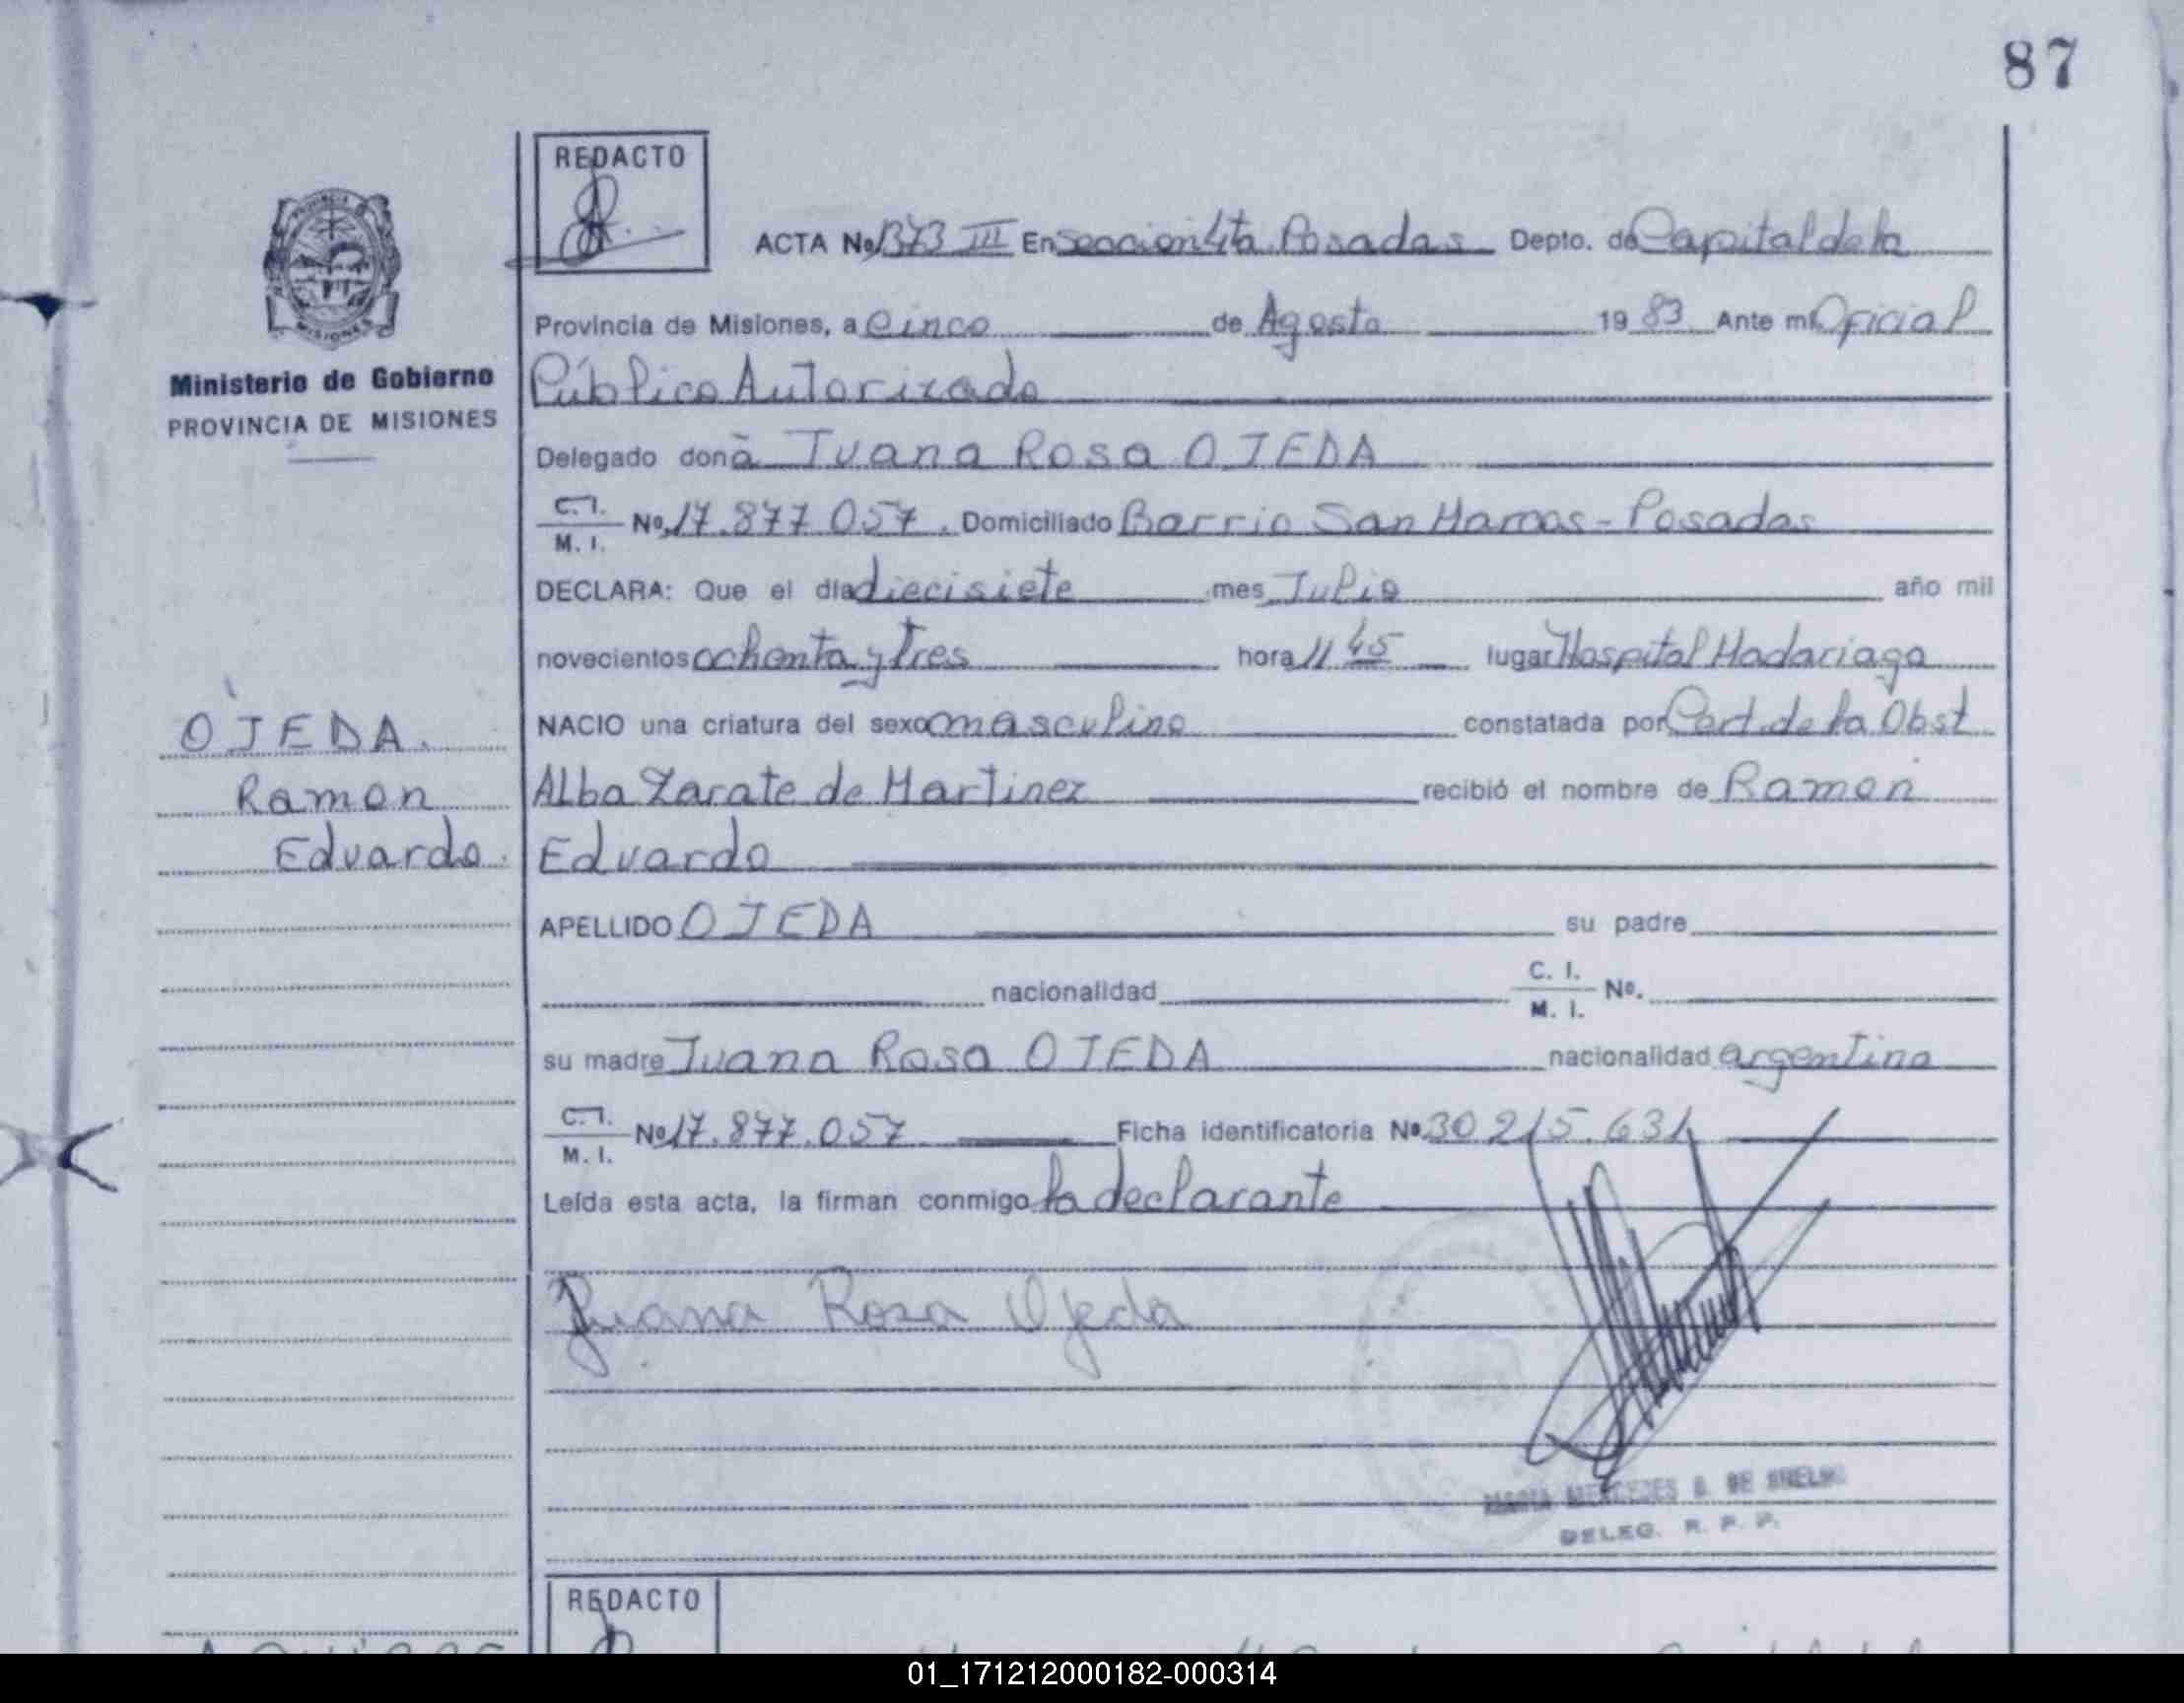 87
REDACTO
ACTA Nº 1373 III En Seccion 4ta Posadas Depto. de Capital de la
Provincia de Misiones, a Cinco de Agosto 1983 Ante mi Oficial
Ministerio de Gobierno
PROVINCIA DE MISIONES
Público Autorizado
Delegado doña Juana Rosa OJEDA
C. I.
M. I.
Nº 17.877.057. Domiciliado Barrio San Marcos - Posadas
DECLARA: Que el día diecisiete mes Julio año mil
novecientos ochenta y Tres hora 11 45 lugar Hospital Madariaga
OJEDA.
Ramon
Eduardo.
NACIO una criatura del sexo masculino constatada por Cert. de la Obst
Alba Zarate de Martinez recibió el nombre de Ramon
Eduardo
APELLIDO OJEDA su padre
nacionalidad C. I.
M. I. Nº.
su madre Juana Rosa OJEDA nacionalidad argentina
C. I.
M. I.
Nº 17.877.057 Ficha identificatoria Nº 30 215.631
Leída esta acta, la firman conmigo la declarante
Juana Rosa Ojeda
MARIA MERCEDES DE
DELEG. R. P. P.
REDACTO
01_171212000182-000314